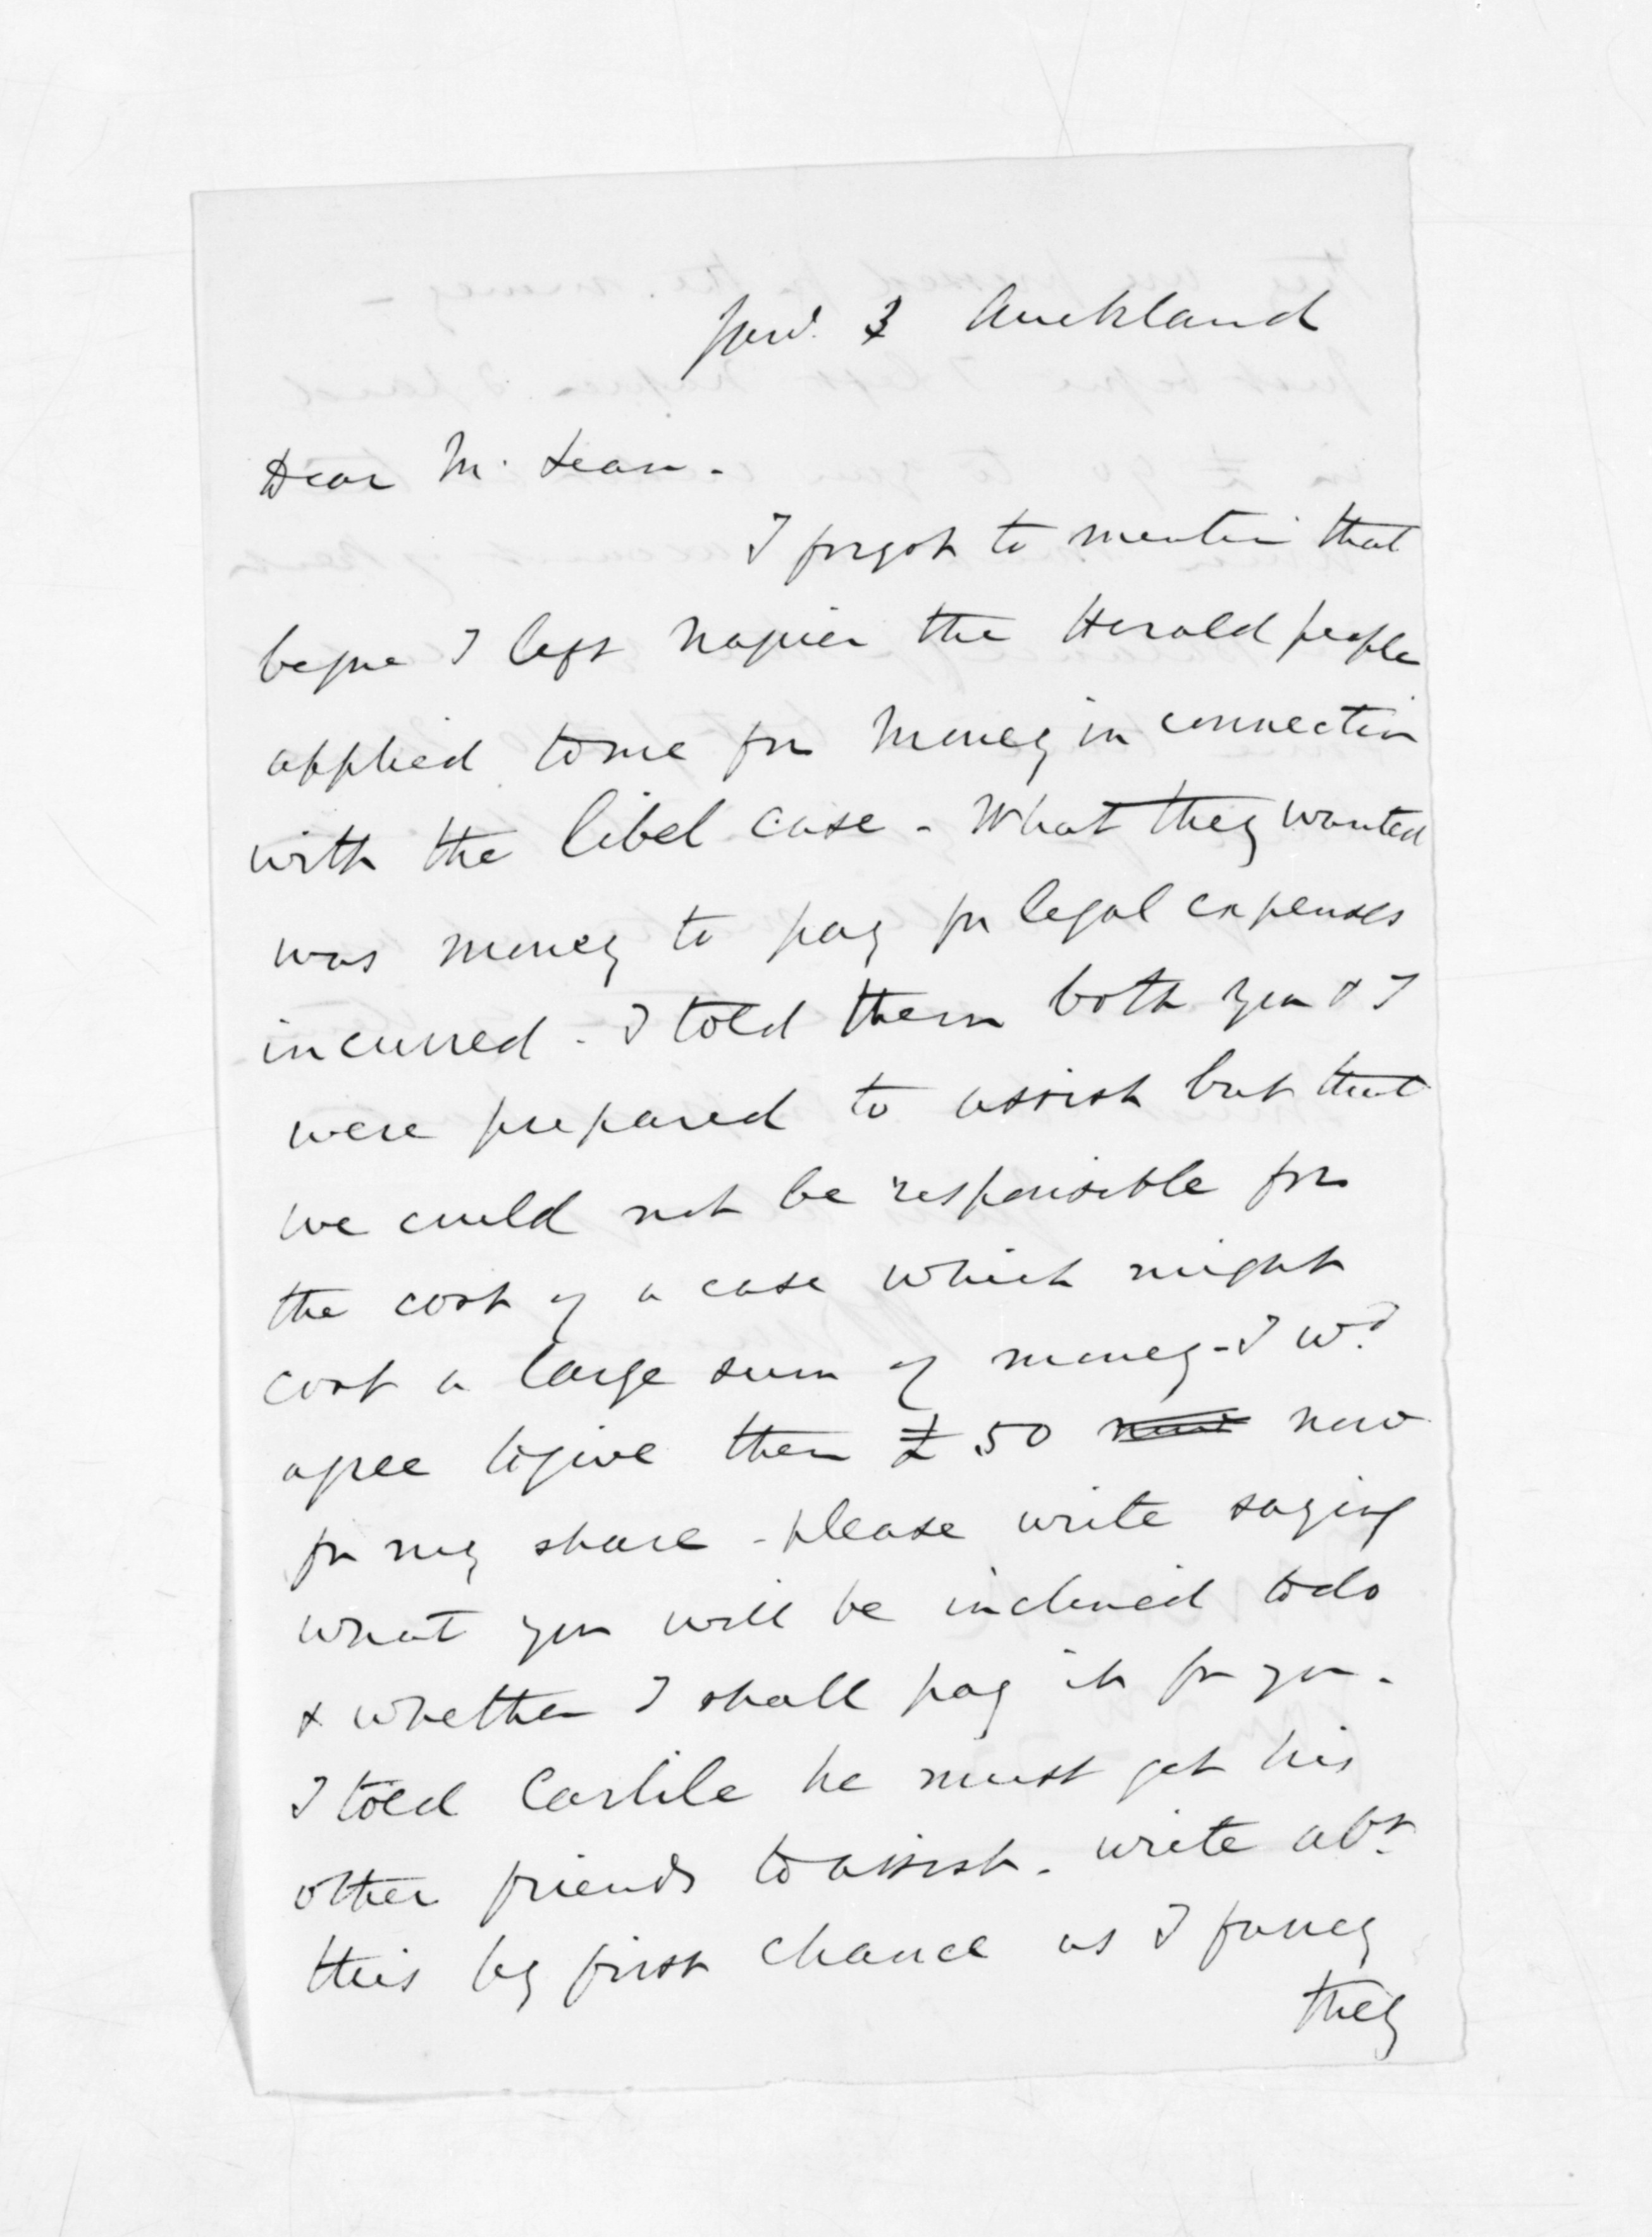 3 Auckland
Dear McLean.
I forgot to mention that
before I left Napier the Herald people
applied to me for money in connection
with the libel case - What they wanted
was money to pay for legal expenses
incurred - I told them both you & I
were prepared to assist but that
we could not be responsible for
the cost of a case which might
cost a large sum of money - I wd.
agree to give them £50 now
for my share - please write saying
what you will be inclined to do
& whether I shall pay it for you -
I told Carlile he must get his
other friends to assist - write abt.
this by first chance as I fancy
they